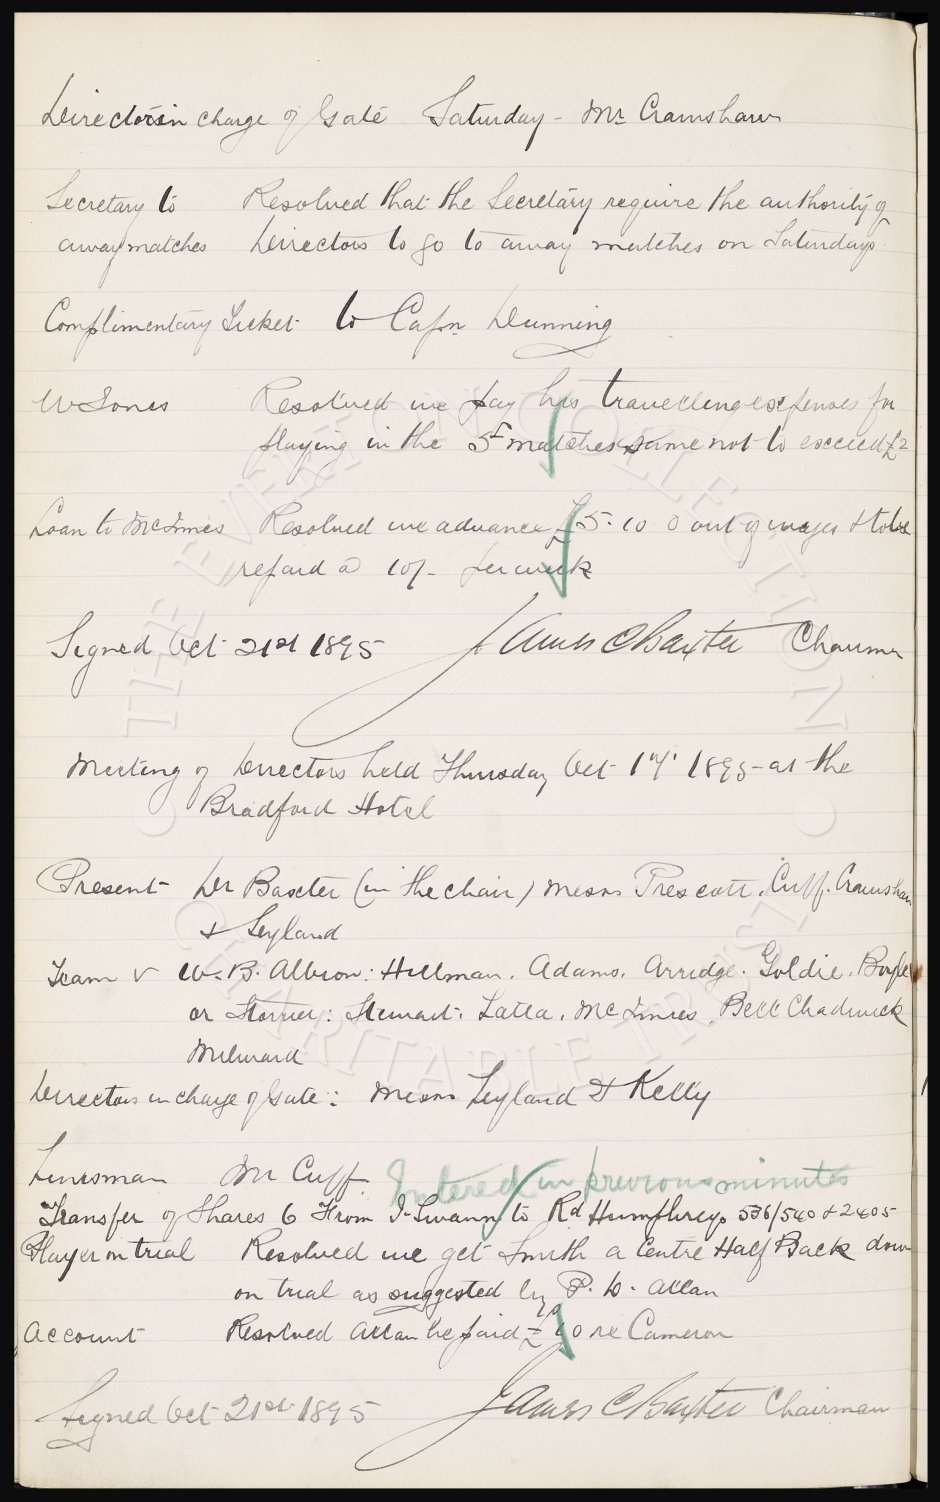 Directors in charge of Gate Saturday - Mr Cramshaw
Secretary to Resolved that the Secretary require the authority of
away matches Directors to go to away matches on Saturdays.
Complimentary Ticket to Capn Dunning
W Jones Resolved we pay his travelling expenses for
playing in the 5 matches same not to exceed £2
Loan to McInnes Resolved we advance £5.10.0 out of wages & to be
repaid @ 10/- per week
Signed Oct 21st 1895 James C Baxter Chairman
Meeting of Directors held Thursday Oct 17th 1895 at the
Bradford Hotel
Present Dr Baxter (in the chair) Messrs Prescott, Cuff, Cramshaw
& Leyland
Team v W.B. Albion: Hillman. Adams. Arridge. Goldie. Boyle
or Storrier: Stewart: Latta. McInnes, Bell Chadwick
Milward
Directors in charge of Gate: Messrs Leyland & Kelly
Linesman Mr Cuff Entered in previous minutes
Transfer of Shares 6 From J. Swann to Rd Humphreys 536/540 & 2405
Player on trial Resolved we get Smith a Centre Half Back down
on trial as suggested by P. D. Allan
Account Resolved Allan be paid £10 re Cameron
Signed Oct 21st 1895 James C Baxter Chairman
THE EVERTON COLLECTION
CHARITABLE TRUST